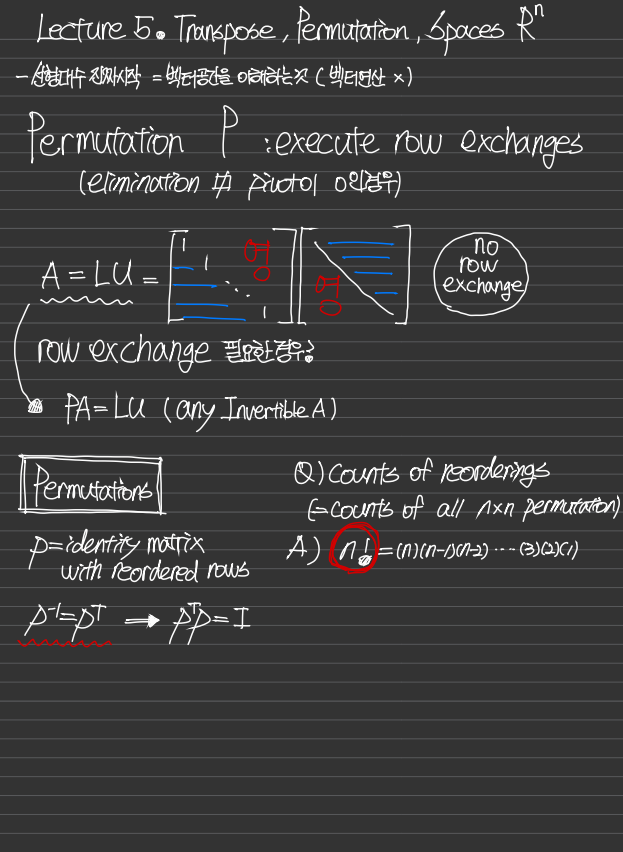 Lecture 5. Transpose, Permutation, Spaces Rⁿ
- 선형대수 진짜시작 = 벡터공간을 이해하는것 (벡터연산 ×)
Permutation P : execute row exchanges
(elimination 中 pivot이 0인경우)
A = LU = [1 1 ⋱ 1 영] [영]
no
row
exchange
row exchange 필요한경우?
PA = LU (any Invertible A)
Permutations
P = identity matrix
with reordered rows
P⁻¹ = Pᵀ → PᵀP = I
Q) counts of reorderings
(= counts of all n×n permutation)
A) n! = (n)(n-1)(n-2) ---- (3)(2)(1)